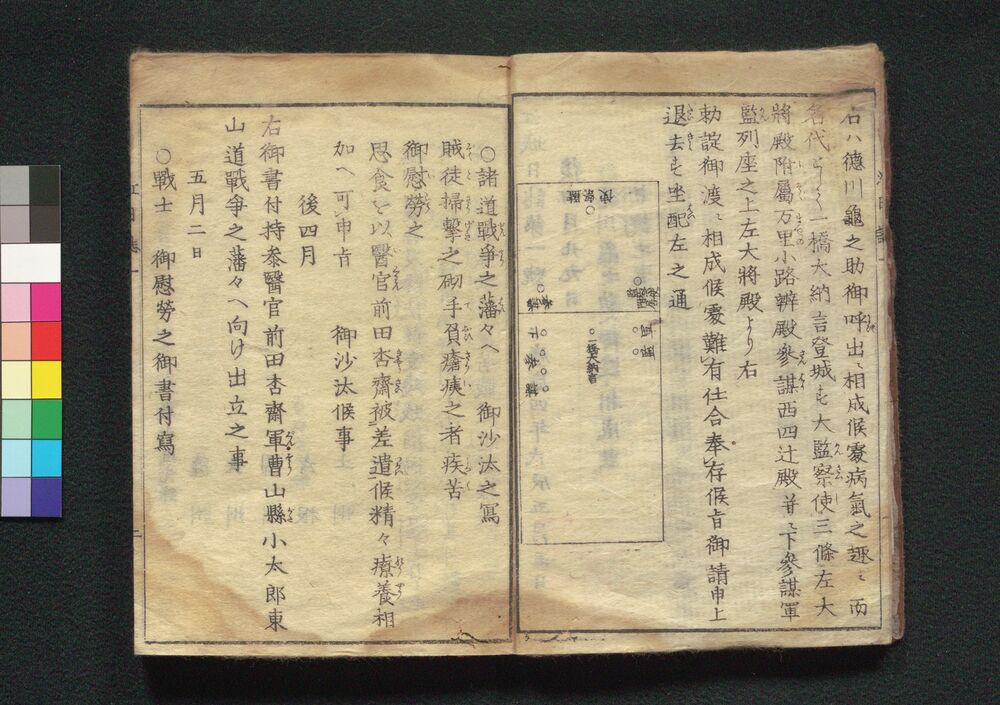 右ハ徳川龜之助御呼出ニ相成候處病氣之趣ニ而
名代として一橋大納言登城も大監察使三條左大
將殿附屬万里小路辨殿參謀西四辻殿并ニ下參謀軍
監列座之上左大將殿より右
勅諚御渡ニ相成候處難有仕合奉存候旨御請申上
退去も坐配左之通
一橋大納言
○諸道戰爭之藩々へ 御沙汰之寫
賊徒掃撃之砌手負瘡痍之者疾苦
御慰勞之
思食を以醫官前田杏齋被差遣候精々療養相
加へ可申旨 御沙汰候事
後四月
右御書付持參醫官前田杏齋軍曹山縣小太郎東
山道戰爭之藩々へ向け出立之事
五月二日
○戰士 御慰勞之御書付寫